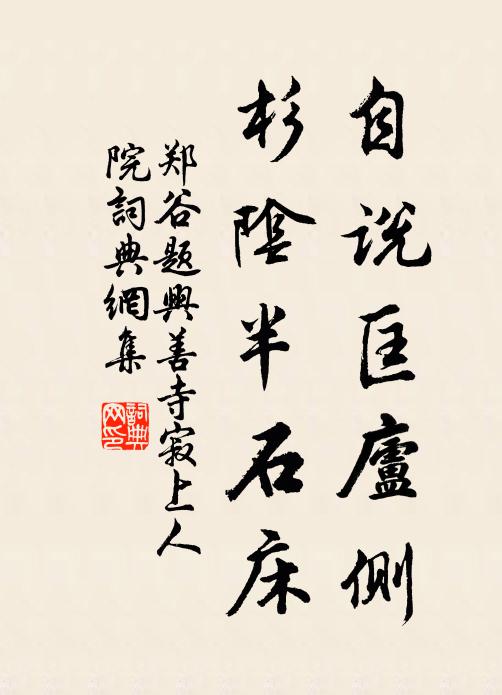 自说匡廬側
杉陰半石床
郑谷题興善寺寂上人
院詞典網集
詞典
网印